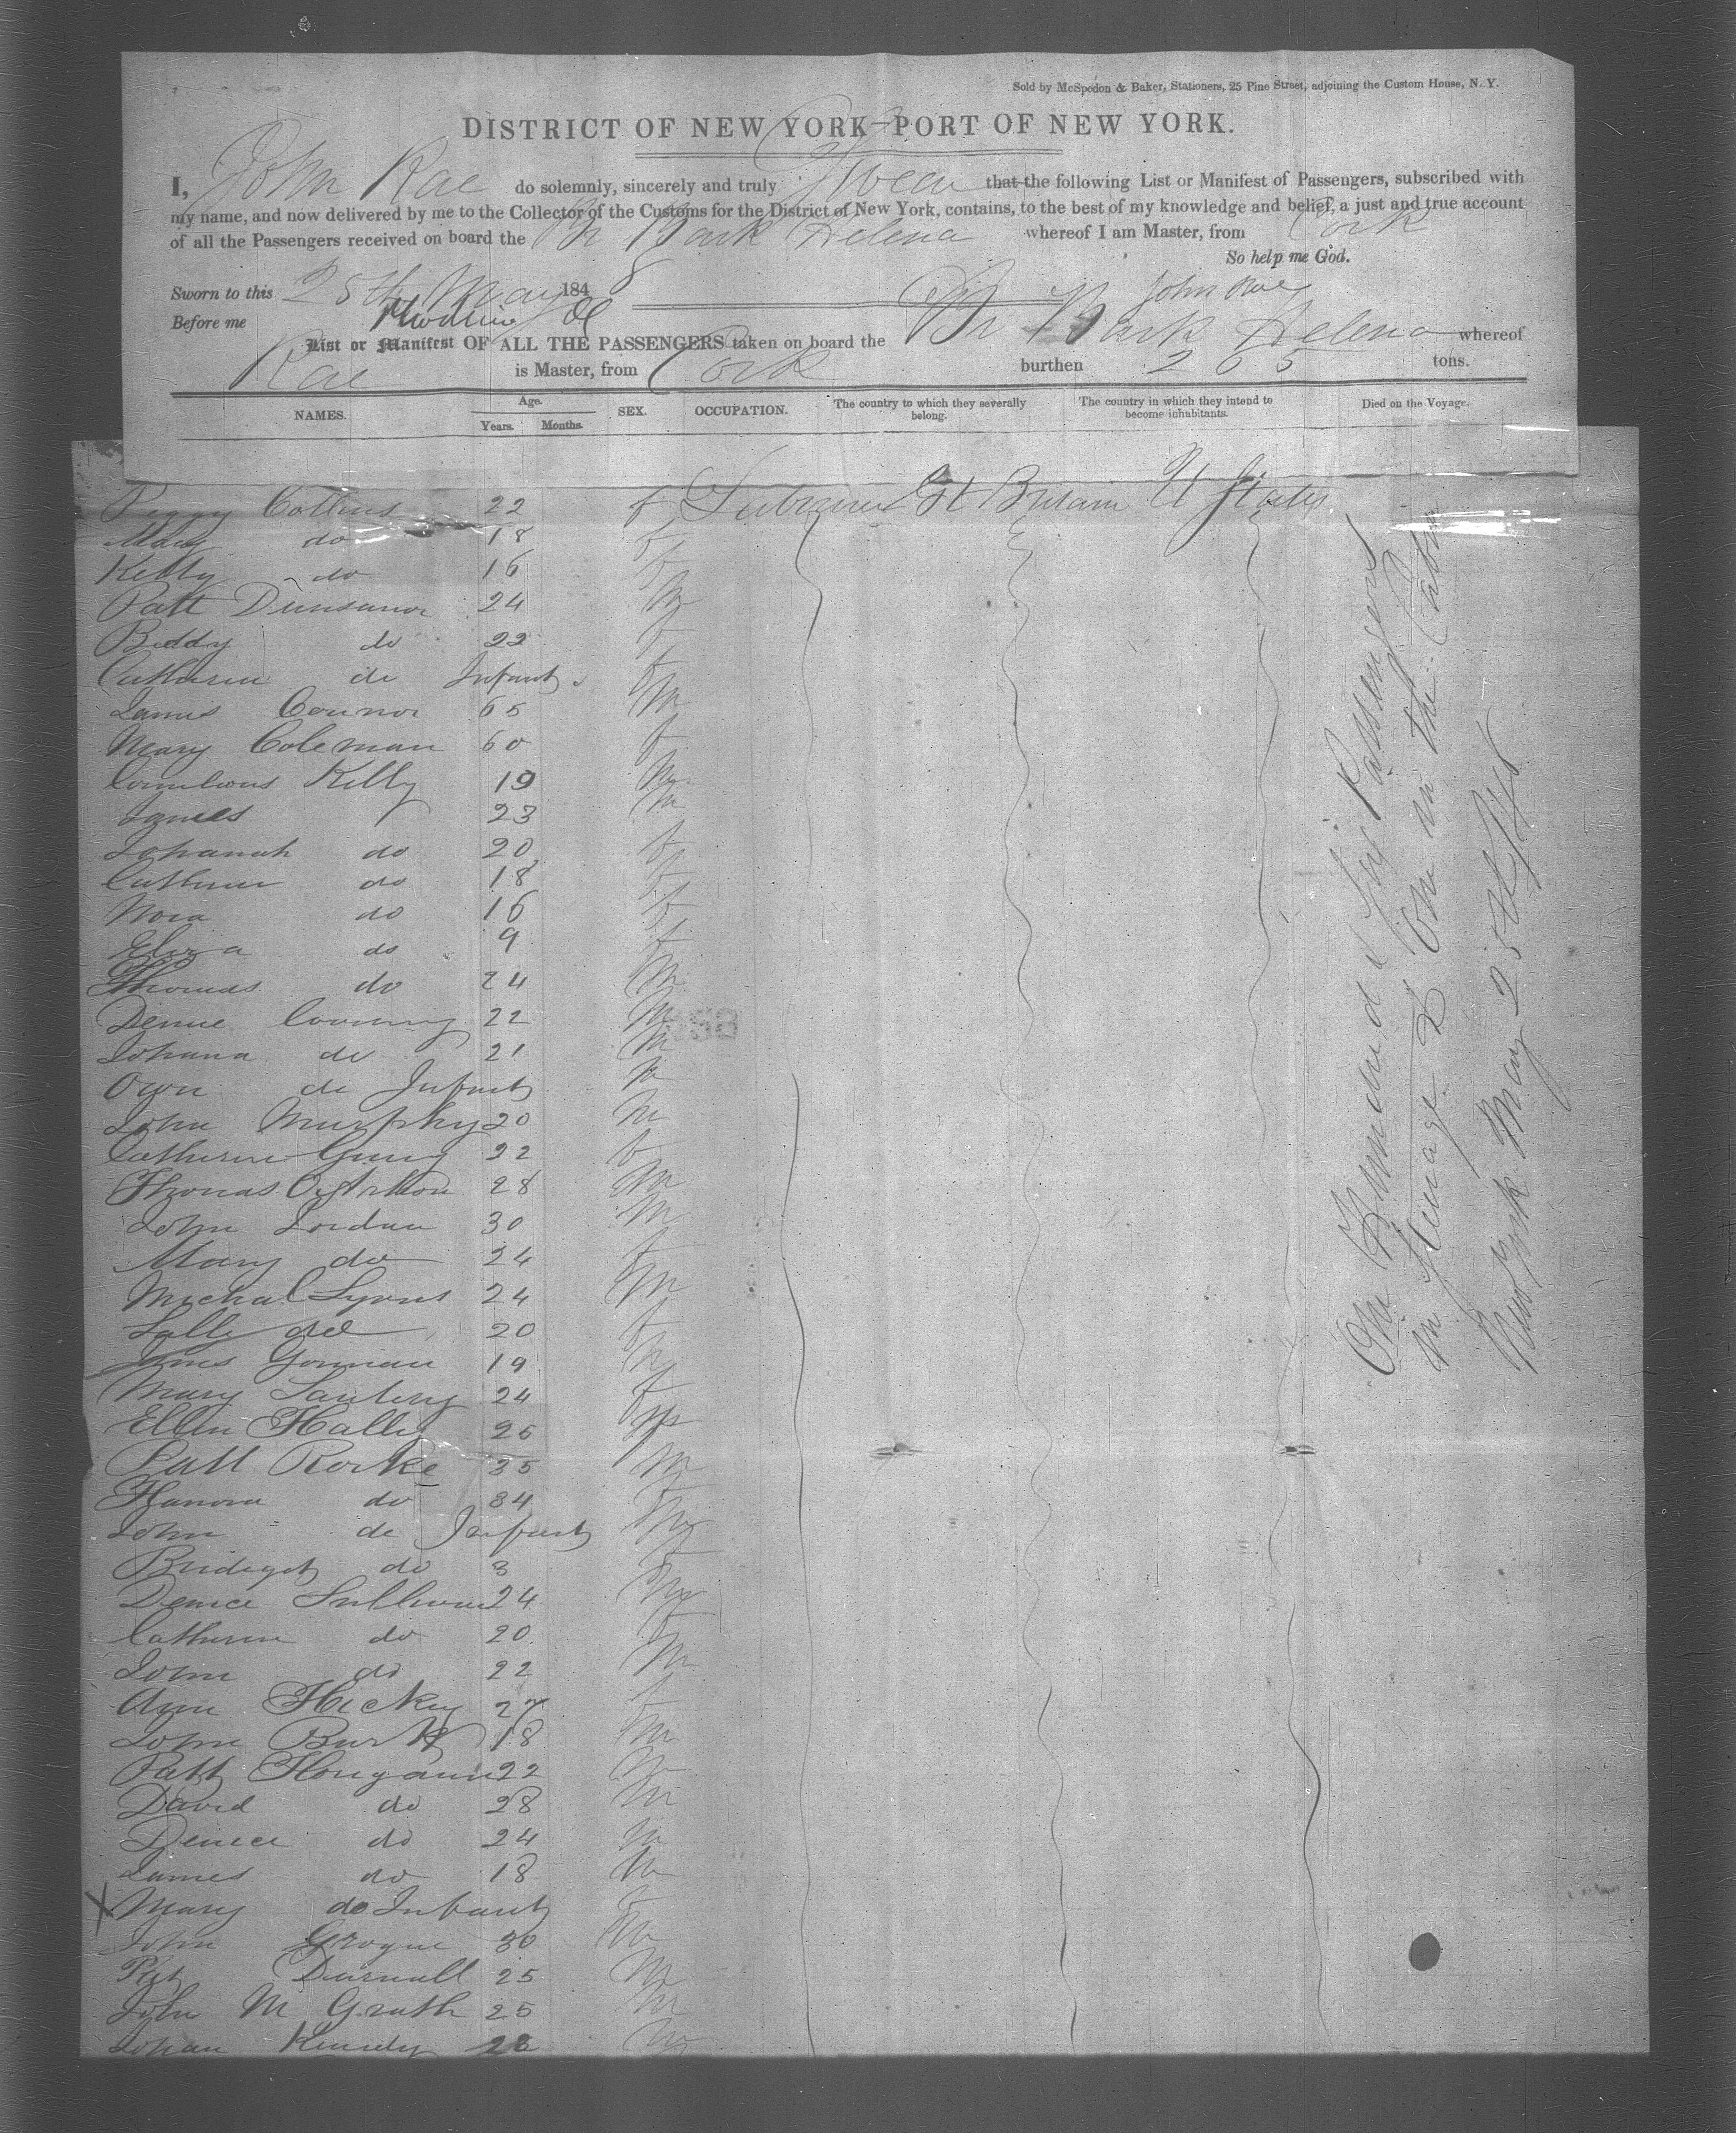 Sold by McSpedon & Baker, Stationers, 25 Pine Street, adjoining the Custom House, N. Y.
DISTRICT OF NEW YORK—PORT OF NEW YORK.
I, John Rae do solemnly, sincerely and truly Swear that the following List or Manifest of Passengers, subscribed with
my name, and now delivered by me to the Collector of the Customs for the District of New York, contains, to the best of my knowledge and belief, a just and true account
of all the Passengers received on board the Br Bark Helena whereof I am Master, from Cork
So help me God.
Sworn to this 25th May 1848 John Rae
Before me
List or Manifest OF ALL THE PASSENGERS taken on board the Br Bark Helena whereof
Rae is Master, from Cork burthen 265 tons.
NAMES. Age. Years. Months. SEX. OCCUPATION. The country to which they severally belong. The country in which they intend to become inhabitants. Died on the Voyage.
Peggy Collins 22 f Gt Britain U States
Mary do 18 f
Kelly do 16 f
Patt 24 M
Biddy do 22 f
Catharin do Infant f
James Connor 65 M
Mary Coleman 60 f
Kelly 19 M
James 23 M
Johanah do 20 f
do 18 f
Nora do 16 f
Eliza do 9 f
Thomas do 24 M
22 M
Johana do 21 M
Owen do Infant M
John Murphy 20 M
Catherin 22 f
Thomas 28 M
John Jordan 30 M
Mary do 24 f
Michal Lyons 24 M
do 20 f
Gorman 19 M
Mary 24 f
Ellen Hally 26
Patt Rorke 35 M
Hanora do 34
John do Infant M
Bridget do 3
Denice Sullivan 24 M
Catherin do 20
John do 22 M
Ann Hickey 27 f
John Burk 18 M
Patt 22 M
David do 28 M
Denice do 24 M
James do 18 M
X Mary do Infant f
John Grogue 30 M
25 M
John M Grath 25 M
M
One Hundred & Six Passengers
in Steerage & One in the Cabin
New York May 25th